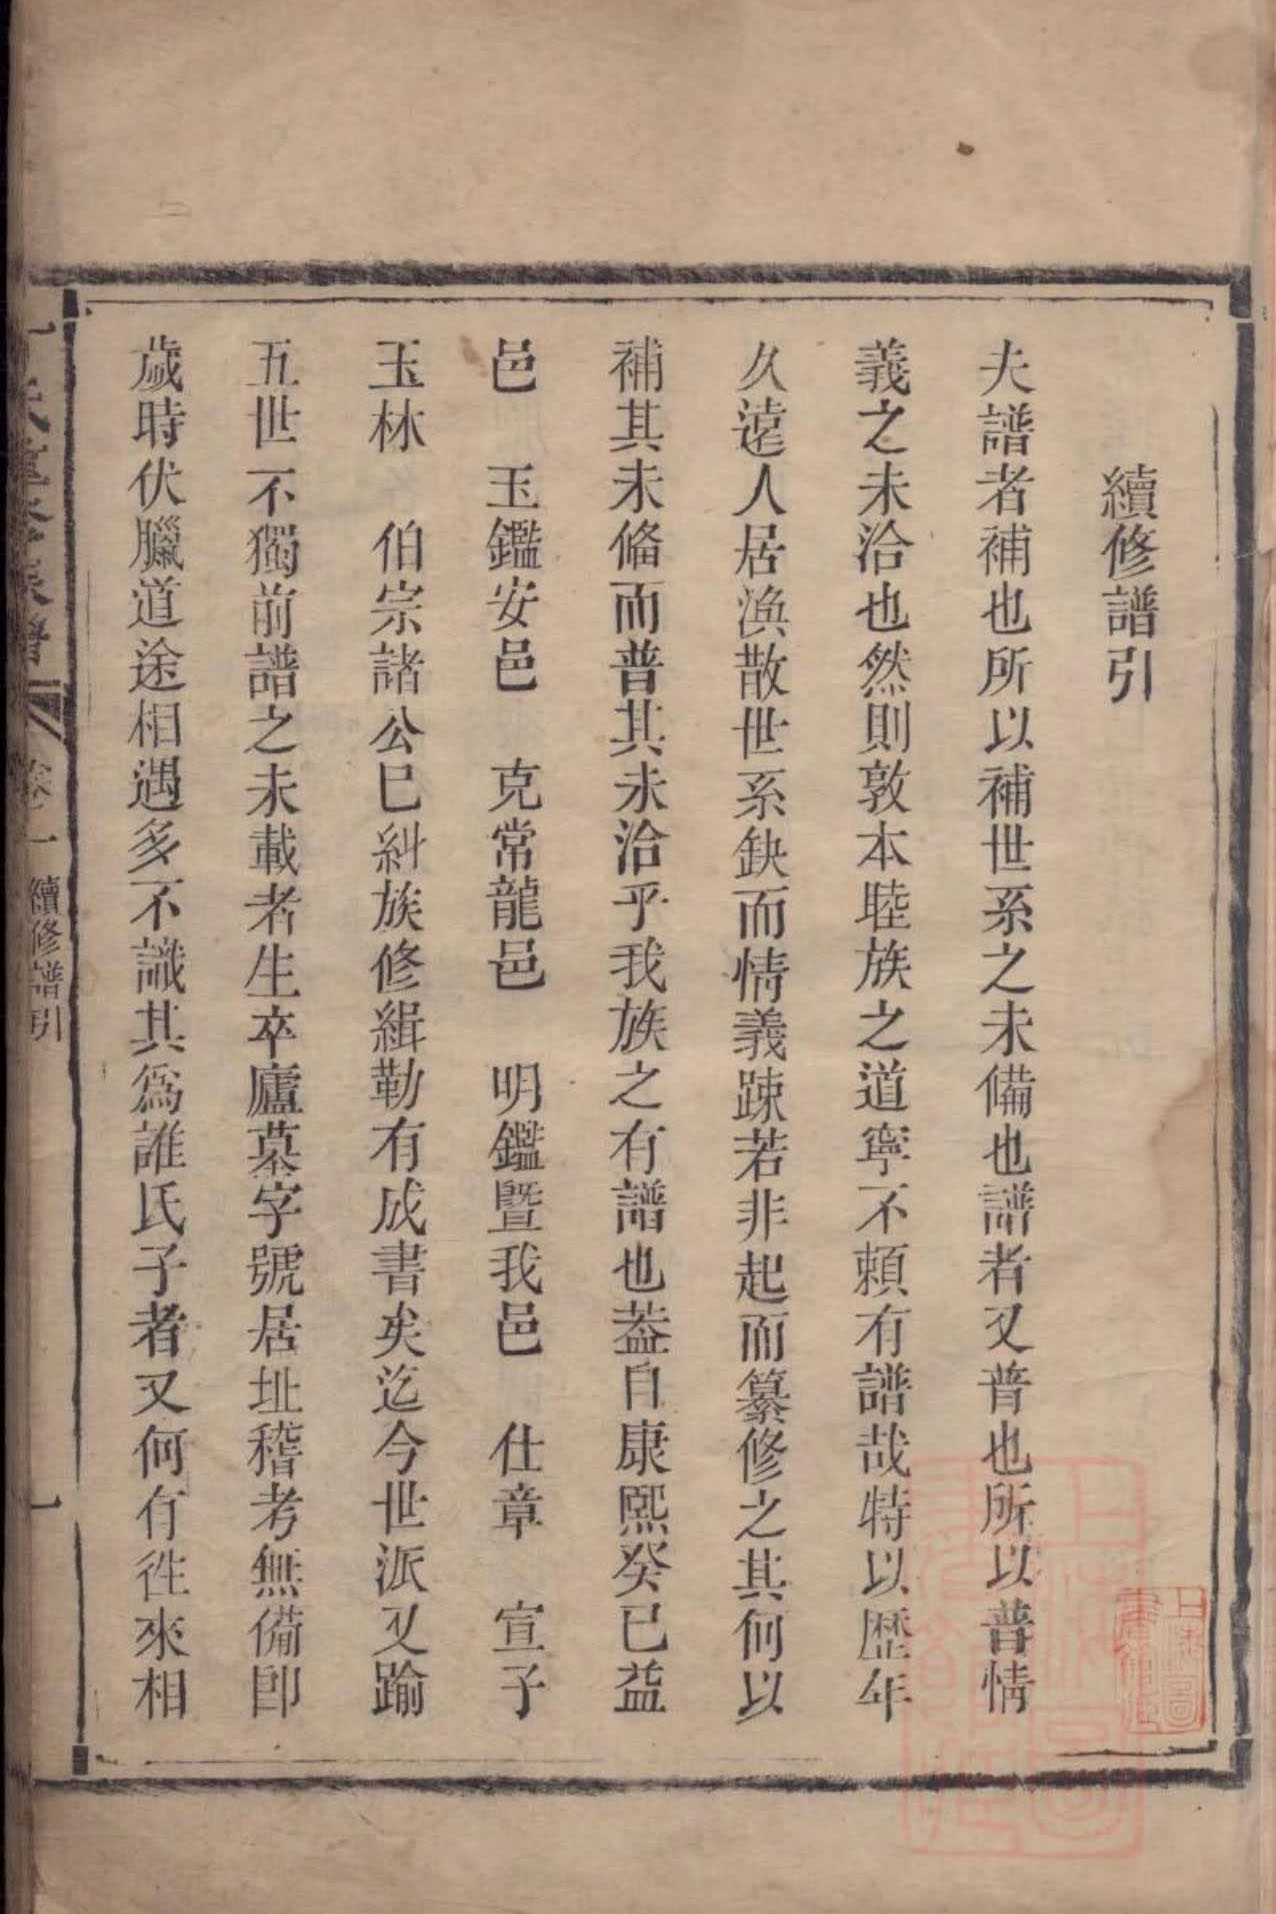 續修譜引
夫譜者補也所以補世系之未備也譜者又普也所以普情
義之未洽也然則敦本睦族之道寧不賴有譜哉特以歷年
久遠人居渙散世系缺而情義踈若非起而纂修之其何以
補其未俻而普其未洽乎我族之有譜也葢自康熙癸巳益
邑　玉鑑安邑　克常龍邑　明鑑暨我邑　仕章　宣子
玉林　伯宗諸公已糾族修緝勒有成書矣迄今世派又踰
五世不獨前譜之未載者生卒廬墓字號居址稽考無備卽
歲時伏臘道途相遇多不識其爲誰氏子者又何有徃來相
卷一
續修譜引
一
上海圖書館藏